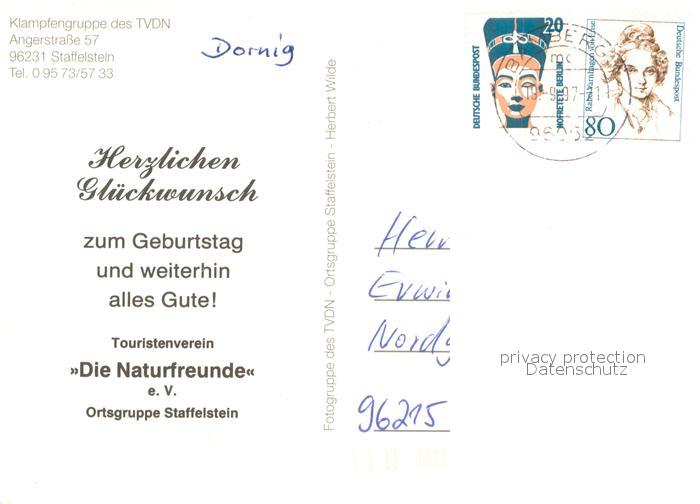 Klampfengruppe des TVDN
Angerstraße 57
96231 Staffelstein
Tel. 0 95 73/57 33
Dornig
Herzlichen
Glückwunsch
zum Geburtstag
und weiterhin
alles Gute!
Touristenverein
»Die Naturfreunde«
e. V.
Ortsgruppe Staffelstein
Fotogruppe des TVDN - Ortsgruppe Staffelstein - Herbert Wilde
DEUTSCHE BUNDESPOST
20
NOFRETETE BERLIN
Rahel Varnhagen von Ense
Deutsche Bundespost
80
Herr
Erwin
96215
privacy protection
Datenschutz